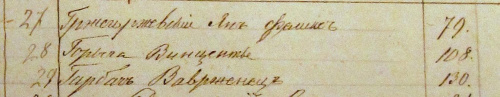 27 Гржегоржевскій Янъ Феликсъ 79.
28 Горыла Винцентъ 108.
29 Гарбачъ Вавржинецъ 130.